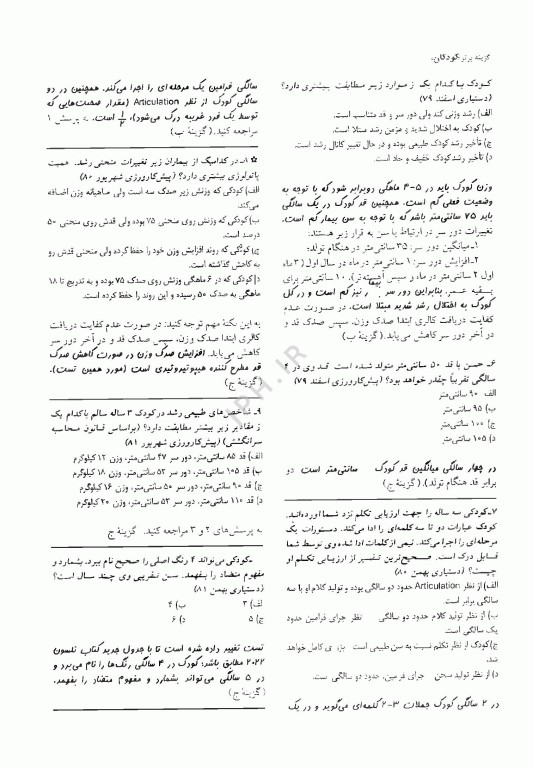 گزینه برتر کودکان
کودک با کدام یک از موارد زیر مطابقت بیشتری دارد؟
(دستیاری اسفند ۷۹)
الف) رشد وزنی کند ولی دور سر و قد متناسب است.
ب) کودک به اختلال شدید و مزمن رشد مبتلا است.
ج) تأخیر رشد کودک طبیعی بوده و در حال تغییر کانال رشد است.
د) تأخیر رشد کودک خفیف و حاد است.
وزن کودک باید در ۵-۴ ماهگی دوبرابر شود که با توجه به
وضعیت فعلی کم است. همچنین قد کودک در یک سالگی
باید ۷۵ سانتی‌متر باشد که با توجه به سن بیمار کم است.
تغییرات دور سر در ارتباط با سن به قرار زیر هستند:
۱-میانگین دور سر: ۳۵ سانتی‌متر در هنگام تولد؛
۲-افزایش دور سر: ۱ سانتی‌متر در ماه در سال اول (۳ ماه
اول ۲ سانتی‌متر در ماه و سپس آهسته‌تر)، ۱۰ سانتی‌متر برای
بقیه عمر. بنابراین دور سر نیز کم است و در کل
کودک به اختلال رشد شدید مبتلا است. در صورت عدم
کفایت دریافت کالری ابتدا صدک وزن، سپس صدک قد و
در آخر دور سر کاهش می‌یابد. (گزینهٔ ب)
۶- حسن با قد ۵۰ سانتی‌متر متولد شده است قد وی در ۴
سالگی تقریباً چقدر خواهد بود؟ (پیش‌کارورزی اسفند ۷۹)
الف) ۹۰ سانتی‌متر
ب) ۹۵ سانتی‌متر
ج) ۱۰۰ سانتی‌متر
د) ۱۰۵ سانتی‌متر
در چهار سالگی میانگین قد کودک سانتی‌متر است دو
برابر قد هنگام تولد). (گزینهٔ ج)
۷-کودکی سه ساله را جهت ارزیابی تکلم نزد شما آورده‌اند.
کودک عبارات دو تا سه کلمه‌ای را ادا می‌کند. دستورات یک
مرحله‌ای را اجرا می‌کند. نیمی از کلمات ادا شده وی توسط شما
قابل درک است. صحیح‌ترین تفسیر از ارزیابی تکلم او
چیست؟ (دستیاری بهمن ۸۰)
الف) از نظر Articulation حدود دو سالگی بوده و تولید کلام او با سه
سالگی برابر است.
ب) از نظر تولید کلام حدود دو سالگی نظر جرای فرامین حدود
یک سالگی است.
ج) کودک از نظر تکلم نسبت به سن طبیعی است کامل خواهد
شد.
د) از نظر تولید سخن جرای فرمین، حدود دو سالگی است.
در ۲ سالگی کودک جملات ۳-۲ کلمه‌ای می‌گوید و در یک
سالگی فرامین یک مرحله‌ای را اجرا می‌کند. همچنین در دو
سالگی کودک از نظر Articulation (مقدار صحبت‌هایی که
توسط یک فرد غریبه درک می‌شود)، ۱/۲ است. به پرسش ۱
مراجعه کنید. (گزینهٔ ب)
۸- در کدامیک از بیماران زیر تغییرات منحنی رشد، اهمیت
پاتولوژی بیشتری دارد؟ (پیش‌کارورزی شهریور ۸۰)
الف) کودکی که وزنش زیر صدک سه است ولی ماهیانه وزن اضافه
می‌کند.
ب) کودکی که وزنش روی منحنی ۷۵ بوده ولی قدش روی منحنی ۵۰
درصد است.
ج) کودکی که روند افزایش وزن خود را حفظ کرده ولی منحنی قدش رو
به کاهش گذاشته است.
د) کودکی که در ۶ ماهگی وزنش روی صدک ۷۵ بوده و به تدریج تا ۱۸
ماهگی به صدک ۵۰ رسیده و این روند را حفظ کرده است.
به این نکتهٔ مهم توجه کنید: در صورت عدم کفایت دریافت
کالری ابتدا صدک وزن، سپس صدک قد و در آخر دور سر
کاهش می‌یابد. افزایش صدک وزن در صورت کاهش صدک
قد مطرح کننده هیپوتیروئیدی است (مورد همین تست).
(گزینهٔ ج)
۹- شاخص‌های طبیعی رشد در کودک ۳ ساله سالم با کدام یک
از مقادیر زیر بیشتر مطابقت دارد؟ (براساس قانون محاسبه
سرانگشتی) (پیش‌کارورزی شهریور ۸۱)
الف) قد ۸۵ سانتی‌متر، دور سر ۴۷ سانتی‌متر، وزن ۱۲ کیلوگرم
ب) قد ۱۰۵ سانتی‌متر، دور سر ۵۲ سانتی‌متر، وزن ۱۸ کیلوگرم
ج) قد ۹۰ سانتی‌متر، دور سر ۵۰ سانتی‌متر، وزن ۱۶ کیلوگرم
د) قد ۱۱۰ سانتی‌متر، دور سر ۵۳ سانتی‌متر، وزن ۲۰ کیلوگرم
به پرسش‌های ۲ و ۳ مراجعه کنید. گزینهٔ ج
-کودکی می‌تواند ۴ رنگ اصلی را صحیح نام ببرد، بشمارد و
مفهوم متضاد را بفهمد. سن تقریبی وی چند سال است؟
(دستیاری بهمن ۸۱)
الف) ۳ ب) ۴
ج) ۵ د) ۶
تست تغییر داده شده است تا با جدول جدید کتاب نلسون
۲۰۲۲ مطابق باشد؛ کودک در ۴ سالگی رنگ‌ها را نام می‌برد و
در ۵ سالگی می‌تواند بشمارد و مفهوم متضاد را بفهمد.
(گزینهٔ ج)